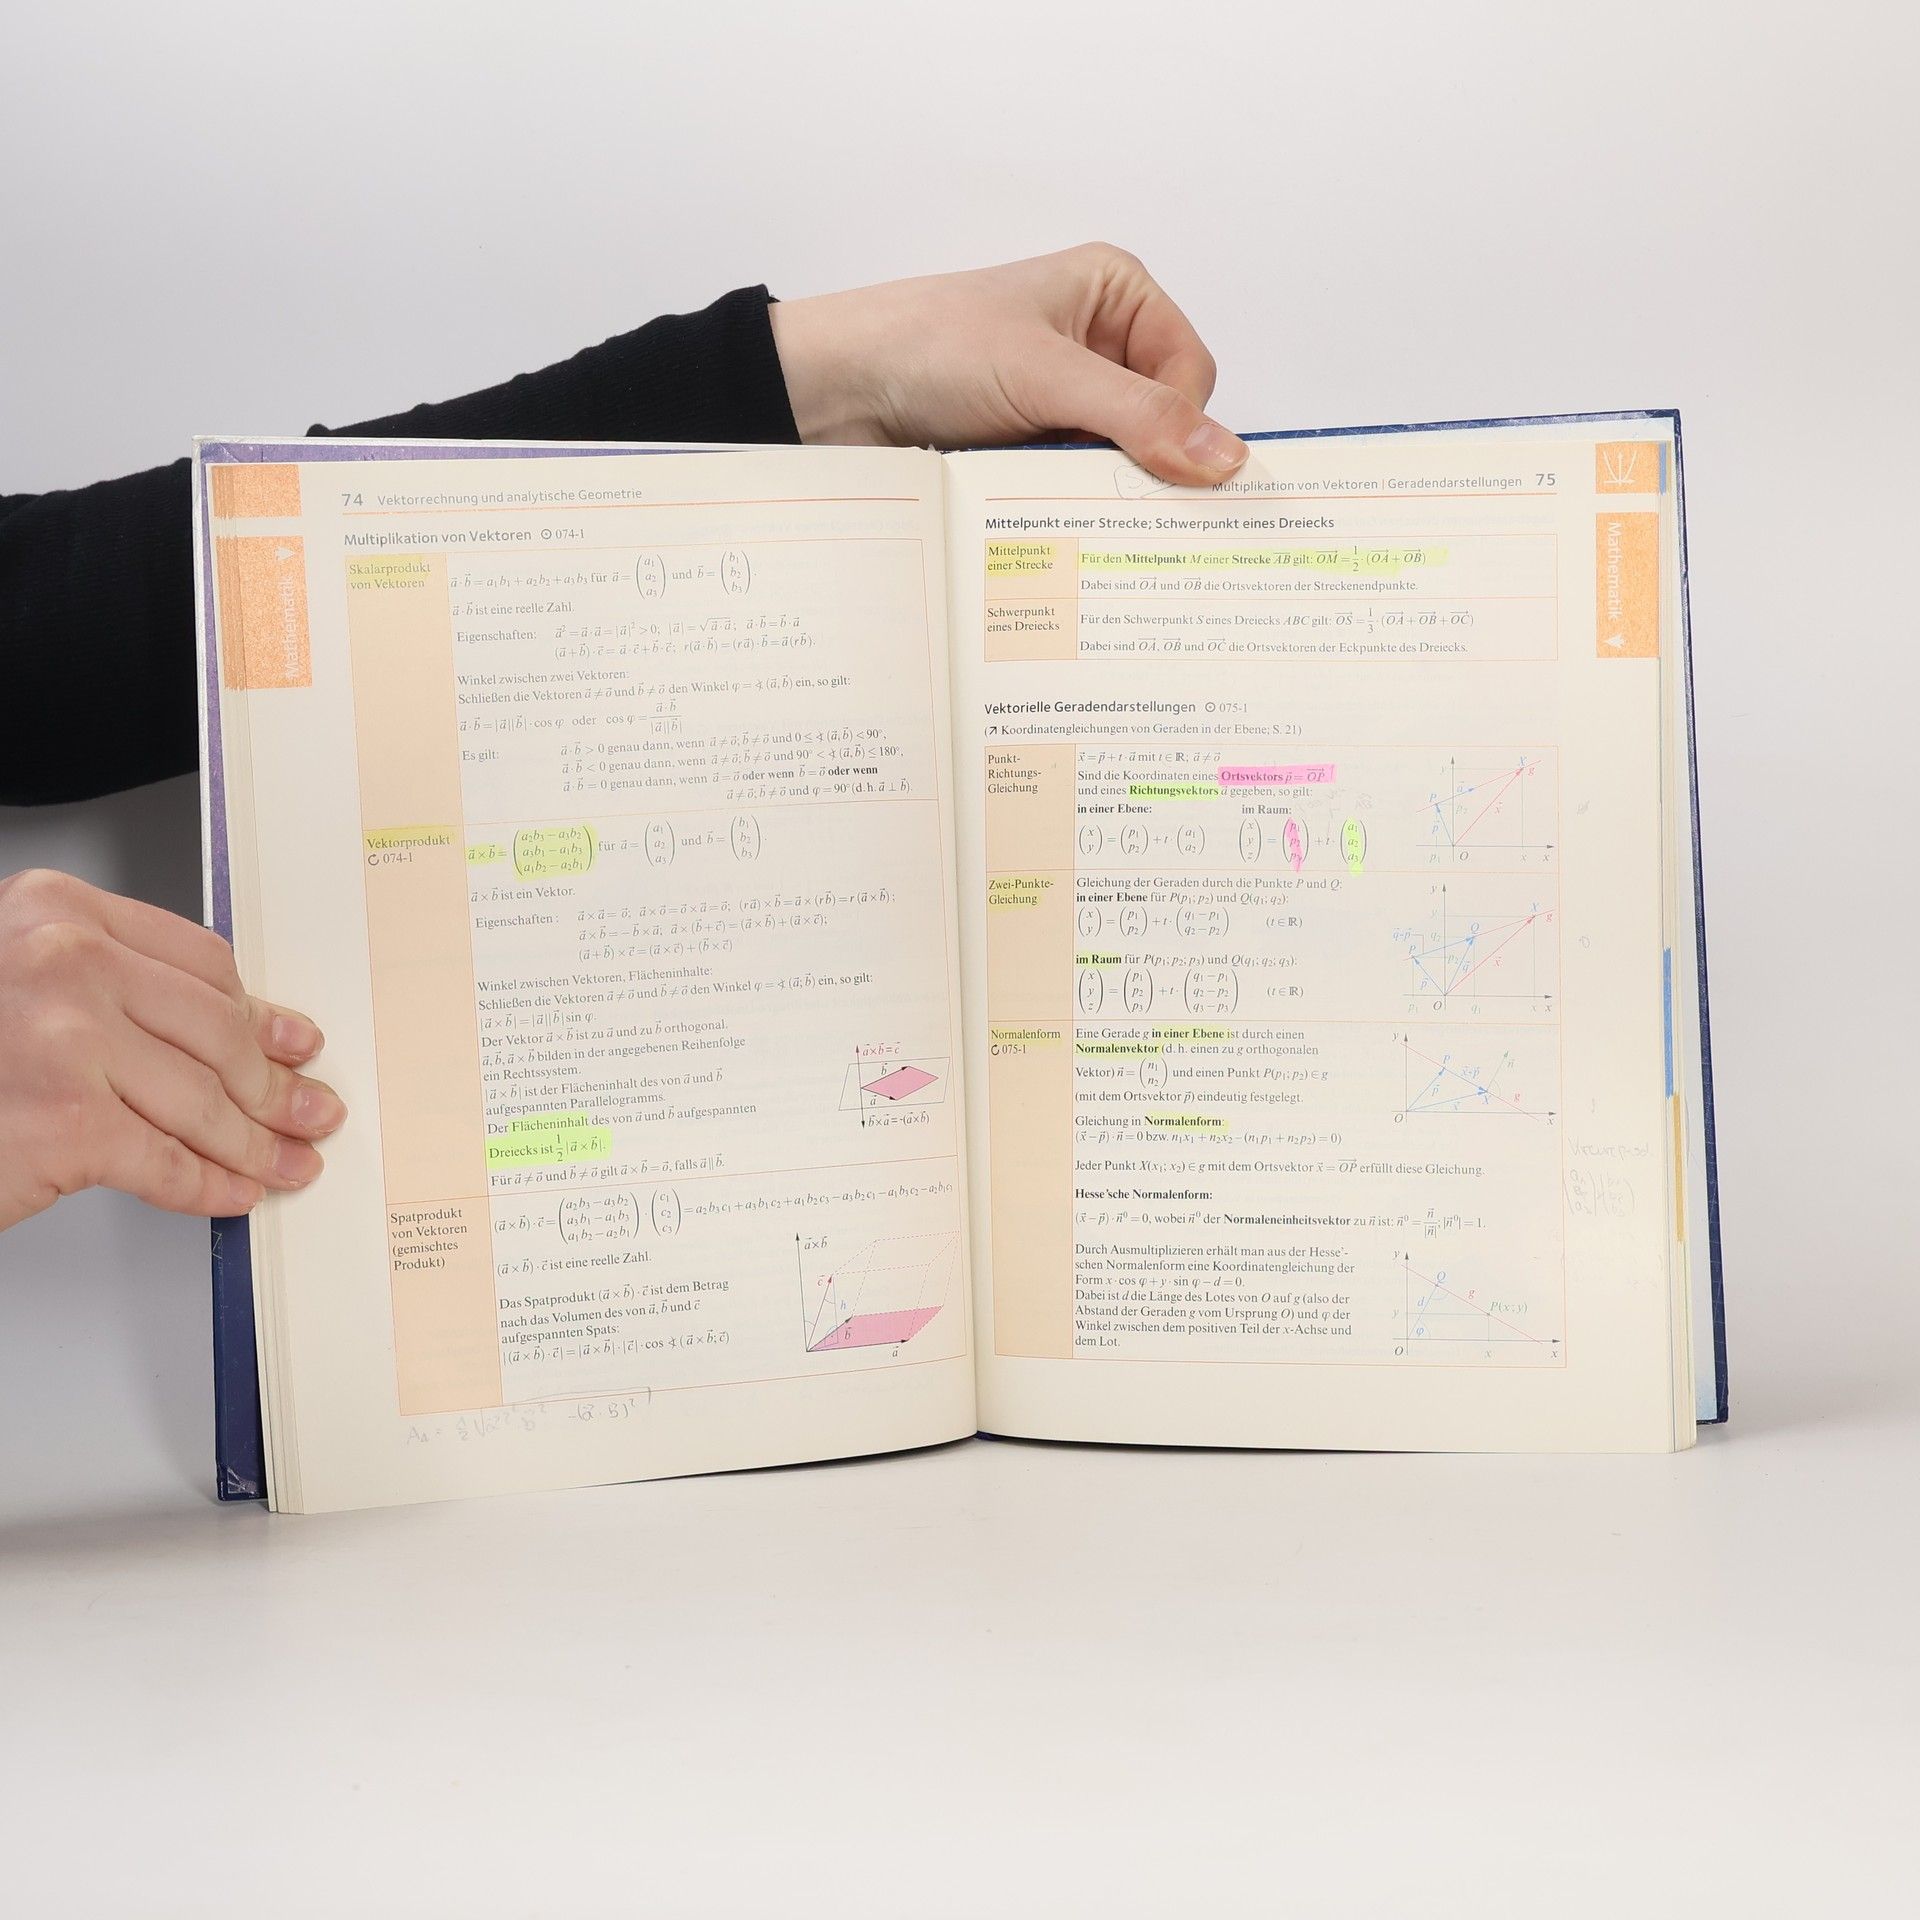 74 Vektorrechnung und analytische Geometrie
Mathematik
Multiplikation von Vektoren 074-1
Skalarprodukt
von Vektoren
a⃗ · b⃗ = a₁b₁ + a₂b₂ + a₃b₃ für a⃗ = (a₁ a₂ a₃) und b⃗ = (b₁ b₂ b₃).
a⃗ · b⃗ ist eine reelle Zahl.
Eigenschaften: a⃗² = a⃗ · a⃗ = |a⃗|² > 0; |a⃗| = √(a⃗ · a⃗); a⃗ · b⃗ = b⃗ · a⃗
(a⃗ + b⃗) · c⃗ = a⃗ · c⃗ + b⃗ · c⃗; r(a⃗ · b⃗) = (ra⃗) · b⃗ = a⃗(rb⃗).
Winkel zwischen zwei Vektoren:
Schließen die Vektoren a⃗ ≠ o⃗ und b⃗ ≠ o⃗ den Winkel φ = ∢ (a⃗, b⃗) ein, so gilt:
a⃗ · b⃗ = |a⃗||b⃗| · cos φ oder cos φ = a⃗ · b⃗ / |a⃗||b⃗|
Es gilt: a⃗ · b⃗ > 0 genau dann, wenn a⃗ ≠ o⃗; b⃗ ≠ o⃗ und 0 ≤ ∢ (a⃗, b⃗) < 90°,
a⃗ · b⃗ < 0 genau dann, wenn a⃗ ≠ o⃗; b⃗ ≠ o⃗ und 90° < ∢ (a⃗, b⃗) ≤ 180°,
a⃗ · b⃗ = 0 genau dann, wenn a⃗ = o⃗ oder wenn b⃗ = o⃗ oder wenn
a⃗ ≠ o⃗; b⃗ ≠ o⃗ und φ = 90° (d. h. a⃗ ⊥ b⃗).
Vektorprodukt
074-1
a⃗ × b⃗ = (a₂b₃ − a₃b₂ a₃b₁ − a₁b₃ a₁b₂ − a₂b₁) für a⃗ = (a₁ a₂ a₃) und b⃗ = (b₁ b₂ b₃).
a⃗ × b⃗ ist ein Vektor.
Eigenschaften: a⃗ × a⃗ = o⃗; a⃗ × o⃗ = o⃗ × a⃗ = o⃗; (ra⃗) × b⃗ = a⃗ × (rb⃗) = r (a⃗ × b⃗);
a⃗ × b⃗ = − b⃗ × a⃗; a⃗ × (b⃗ + c⃗) = (a⃗ × b⃗) + (a⃗ × c⃗);
(a⃗ + b⃗) × c⃗ = (a⃗ × c⃗) + (b⃗ × c⃗)
Winkel zwischen Vektoren, Flächeninhalte:
Schließen die Vektoren a⃗ ≠ o⃗ und b⃗ ≠ o⃗ den Winkel φ = ∢ (a⃗; b⃗) ein, so gilt:
|a⃗ × b⃗| = |a⃗||b⃗| sin φ.
Der Vektor a⃗ × b⃗ ist zu a⃗ und zu b⃗ orthogonal.
a⃗, b⃗, a⃗ × b⃗ bilden in der angegebenen Reihenfolge
ein Rechtssystem.
|a⃗ × b⃗| ist der Flächeninhalt des von a⃗ und b⃗
aufgespannten Parallelogramms.
Der Flächeninhalt des von a⃗ und b⃗ aufgespannten
Dreiecks ist 1/2 |a⃗ × b⃗|.
Für a⃗ ≠ o⃗ und b⃗ ≠ o⃗ gilt a⃗ × b⃗ = o⃗, falls a⃗ || b⃗.
a⃗ × b⃗ = c⃗
b⃗
a⃗
b⃗ × a⃗ = −(a⃗ × b⃗)
Spatprodukt
von Vektoren
(gemischtes
Produkt)
(a⃗ × b⃗) · c⃗ = (a₂b₃ − a₃b₂ a₃b₁ − a₁b₃ a₁b₂ − a₂b₁) · (c₁ c₂ c₃) = a₂b₃c₁ + a₃b₁c₂ + a₁b₂c₃ − a₃b₂c₁ − a₁b₃c₂ − a₂b₁c₃
(a⃗ × b⃗) · c⃗ ist eine reelle Zahl.
Das Spatprodukt (a⃗ × b⃗) · c⃗ ist dem Betrag
nach das Volumen des von a⃗, b⃗ und c⃗
aufgespannten Spats:
|(a⃗ × b⃗) · c⃗| = |a⃗ × b⃗| · |c⃗| · cos ∢ (a⃗ × b⃗; c⃗)
a⃗ × b⃗
c⃗
h
b⃗
a⃗
Multiplikation von Vektoren | Geradendarstellungen 75
Mathematik
Mittelpunkt einer Strecke; Schwerpunkt eines Dreiecks
Mittelpunkt
einer Strecke
Für den Mittelpunkt M einer Strecke AB gilt: OM⃗ = 1/2 · (OA⃗ + OB⃗)
Dabei sind OA⃗ und OB⃗ die Ortsvektoren der Streckenendpunkte.
Schwerpunkt
eines Dreiecks
Für den Schwerpunkt S eines Dreiecks ABC gilt: OS⃗ = 1/3 · (OA⃗ + OB⃗ + OC⃗)
Dabei sind OA⃗, OB⃗ und OC⃗ die Ortsvektoren der Eckpunkte des Dreiecks.
Vektorielle Geradendarstellungen 075-1
(↗ Koordinatengleichungen von Geraden in der Ebene; S. 21)
Punkt-
Richtungs-
Gleichung
x⃗ = p⃗ + t · a⃗ mit t ∈ ℝ; a⃗ ≠ o⃗
Sind die Koordinaten eines Ortsvektors p⃗ = OP⃗
und eines Richtungsvektors a⃗ gegeben, so gilt:
in einer Ebene: im Raum:
(x y) = (p₁ p₂) + t · (a₁ a₂) (x y z) = (p₁ p₂ p₃) + t · (a₁ a₂ a₃)
Zwei-Punkte-
Gleichung
Gleichung der Geraden durch die Punkte P und Q:
in einer Ebene für P(p₁; p₂) und Q(q₁; q₂):
(x y) = (p₁ p₂) + t · (q₁ − p₁ q₂ − p₂) (t ∈ ℝ)
im Raum für P(p₁; p₂; p₃) und Q(q₁; q₂; q₃):
(x y z) = (p₁ p₂ p₃) + t · (q₁ − p₁ q₂ − p₂ q₃ − p₃) (t ∈ ℝ)
Normalenform
075-1
Eine Gerade g in einer Ebene ist durch einen
Normalenvektor (d. h. einen zu g orthogonalen
Vektor) n⃗ = (n₁ n₂) und einen Punkt P(p₁; p₂) ∈ g
(mit dem Ortsvektor p⃗) eindeutig festgelegt.
Gleichung in Normalenform:
(x⃗ − p⃗) · n⃗ = 0 bzw. n₁x₁ + n₂x₂ − (n₁p₁ + n₂p₂) = 0)
Jeder Punkt X(x₁; x₂) ∈ g mit dem Ortsvektor x⃗ = OP⃗ erfüllt diese Gleichung.
Hesse'sche Normalenform:
(x⃗ − p⃗) · n⃗⁰ = 0, wobei n⃗⁰ der Normaleneinheitsvektor zu n⃗ ist: n⃗⁰ = n⃗/|n⃗|; |n⃗⁰| = 1.
Durch Ausmultiplizieren erhält man aus der Hesse'-
schen Normalenform eine Koordinatengleichung der
Form x · cos φ + y · sin φ − d = 0.
Dabei ist d die Länge des Lotes von O auf g (also der
Abstand der Geraden g vom Ursprung O) und φ der
Winkel zwischen dem positiven Teil der x-Achse und
dem Lot.
y
Q
d
g
P(x; y)
y
φ
O x x